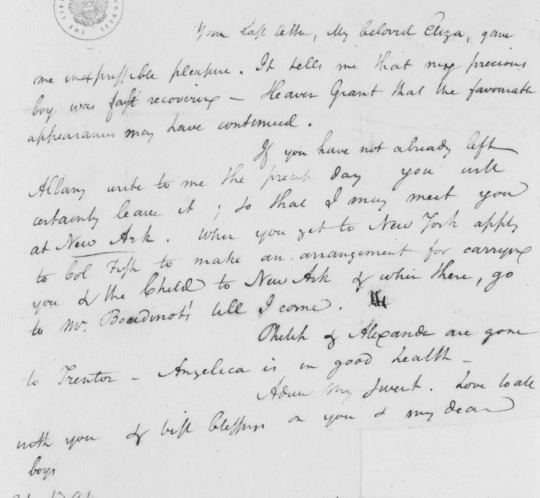 Your last letter, My beloved Eliza, gave
me inexpressible pleasure. It tells me that my precious
boy was fast recovering – Heaven Grant that the favourable
appearances may have continued.
If you have not already left
Albany write to me the precise day you will
certainly leave it; so that I may meet you
at New Ark. When you get to New York apply
to Col Fish to make an arrangement for carrying
you & the Child to New Ark & when there, go
to Mr. Boudinot's till I come.
Philip & Alexander are gone
to Trenton – Angelica is in good health –
Adieu My sweet. Love to all
with you & best blessings on you & my dear
boys